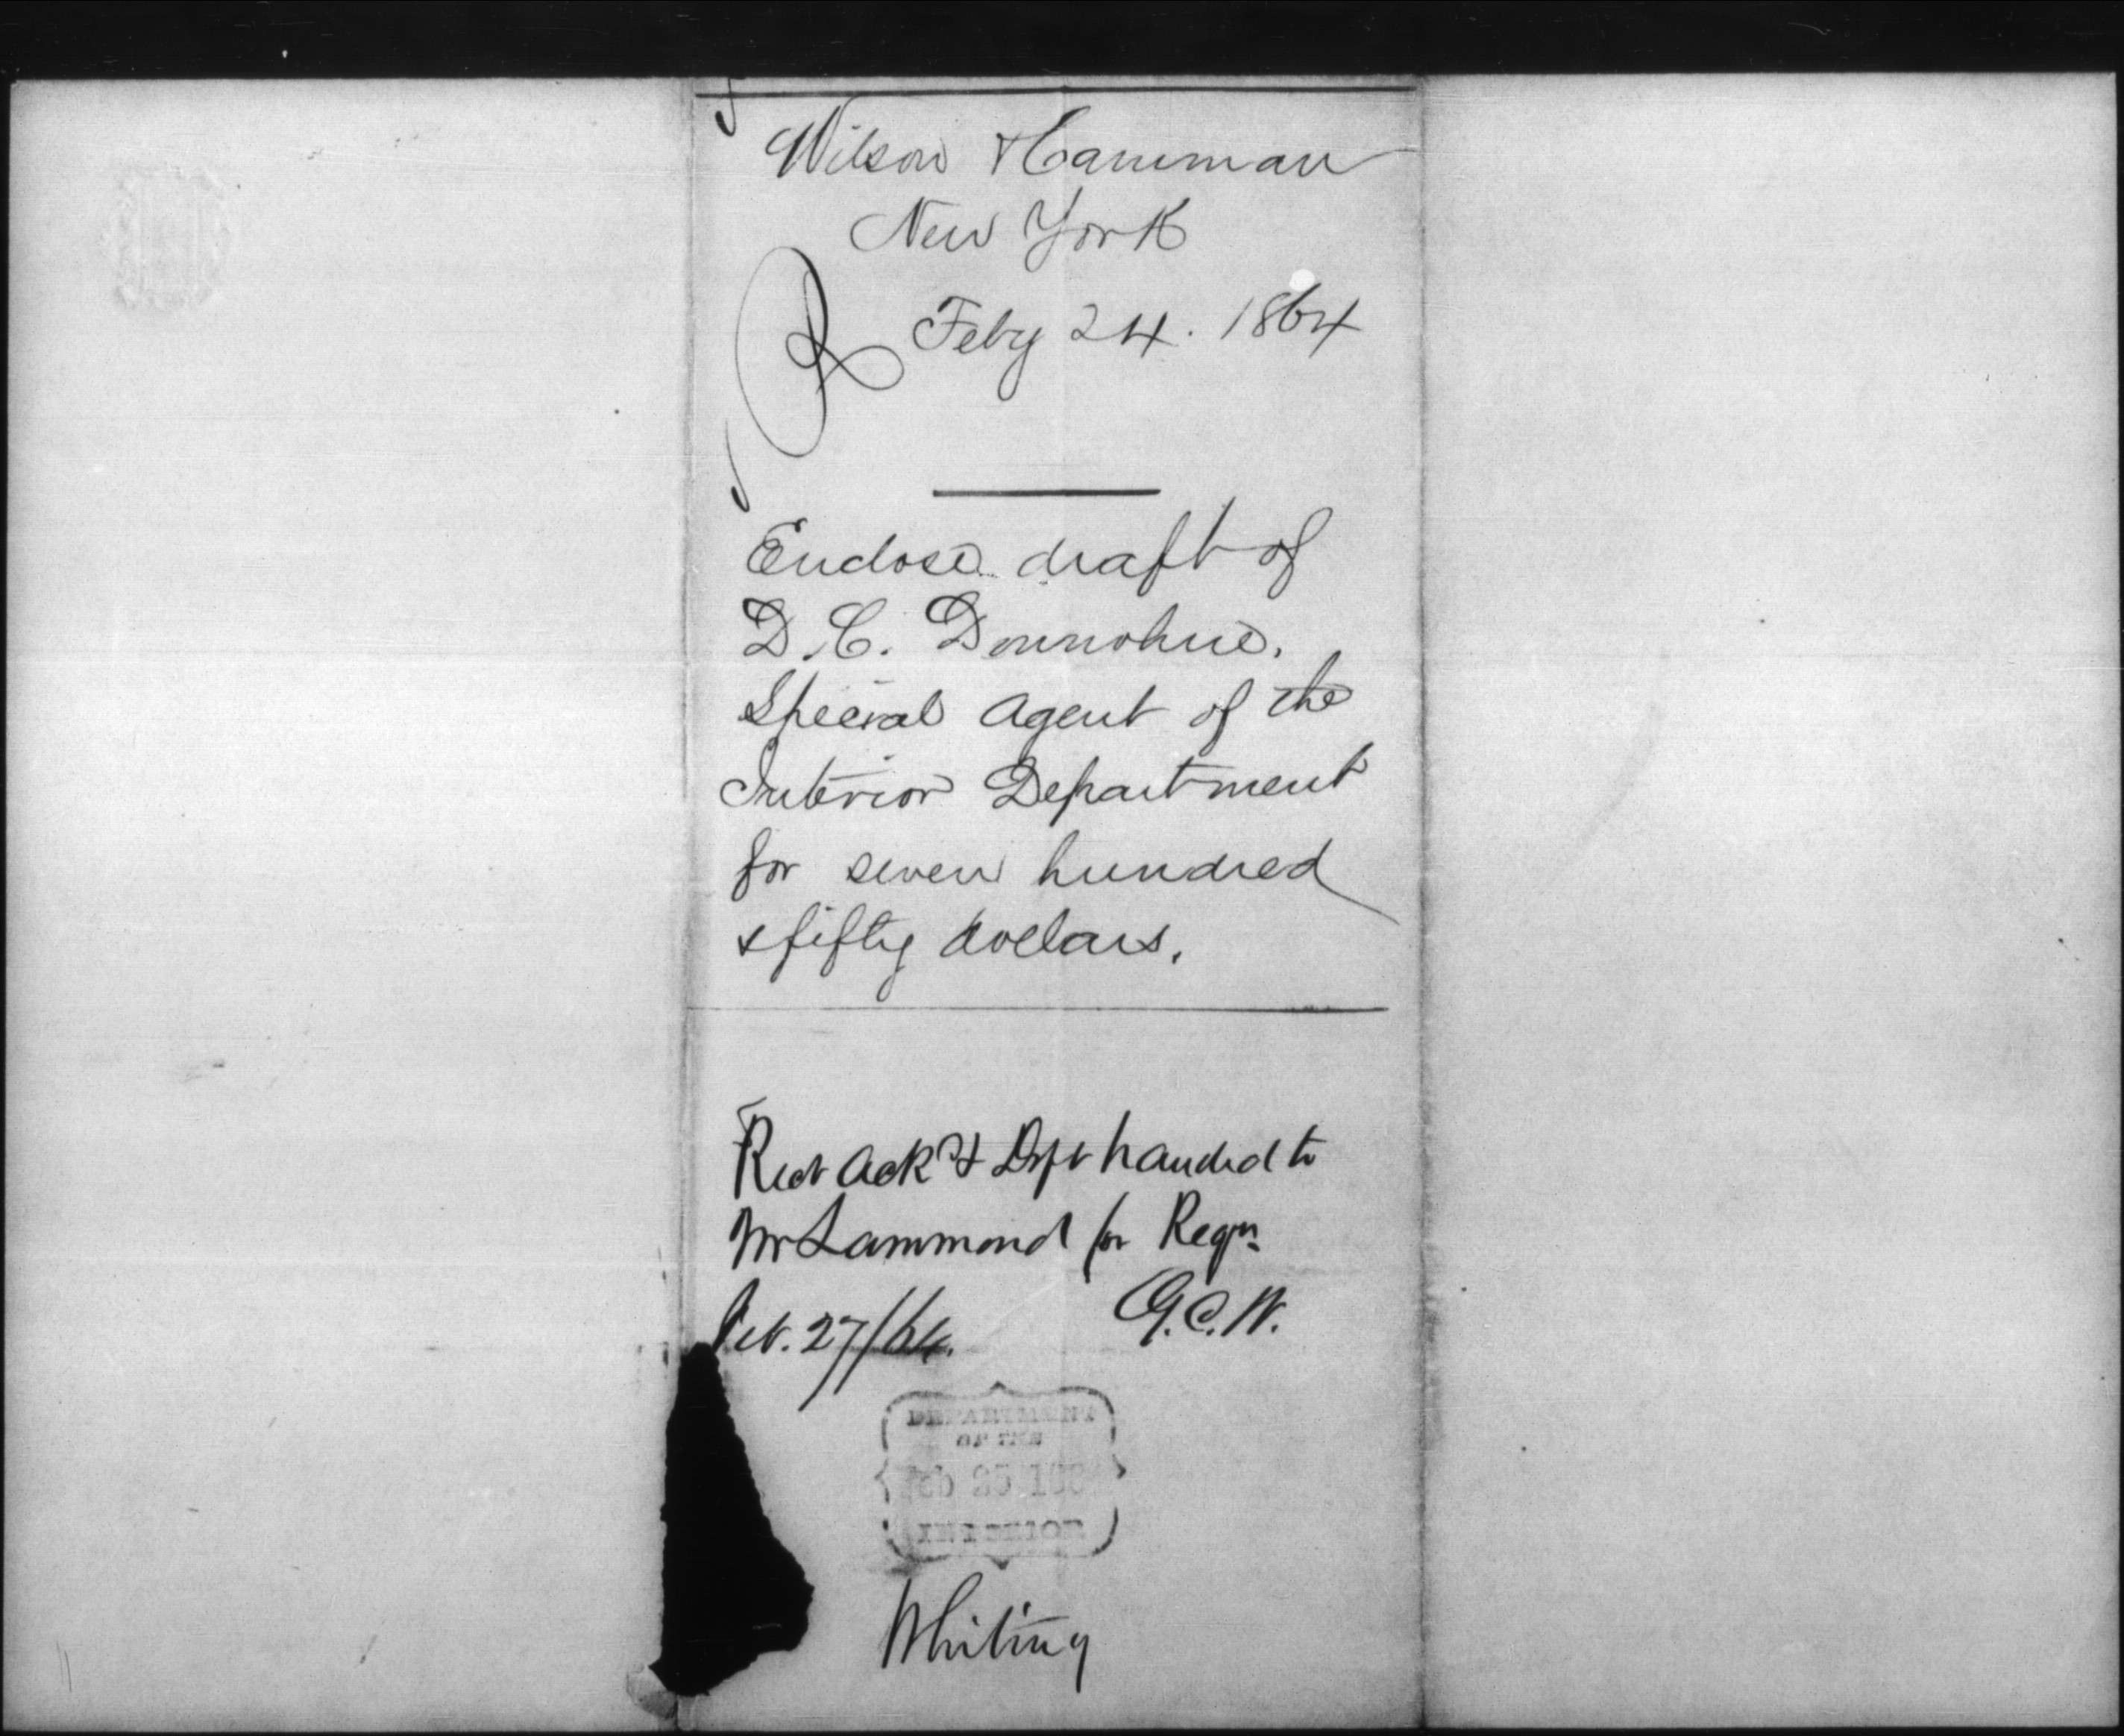 Wilson & Cammann
New York
R Feby 24. 1864
Enclose draft of
D. C. Donnohue.
Special Agent of the
Interior Department
for seven hundred
& fifty dollars.
Rect Ack'd & Dft handed to
Mr Lammond for Reqn.
Feb. 27/64. G.C.W.
DEPARTMENT
OF THE
Feb 25 186
INTERIOR
Whiting